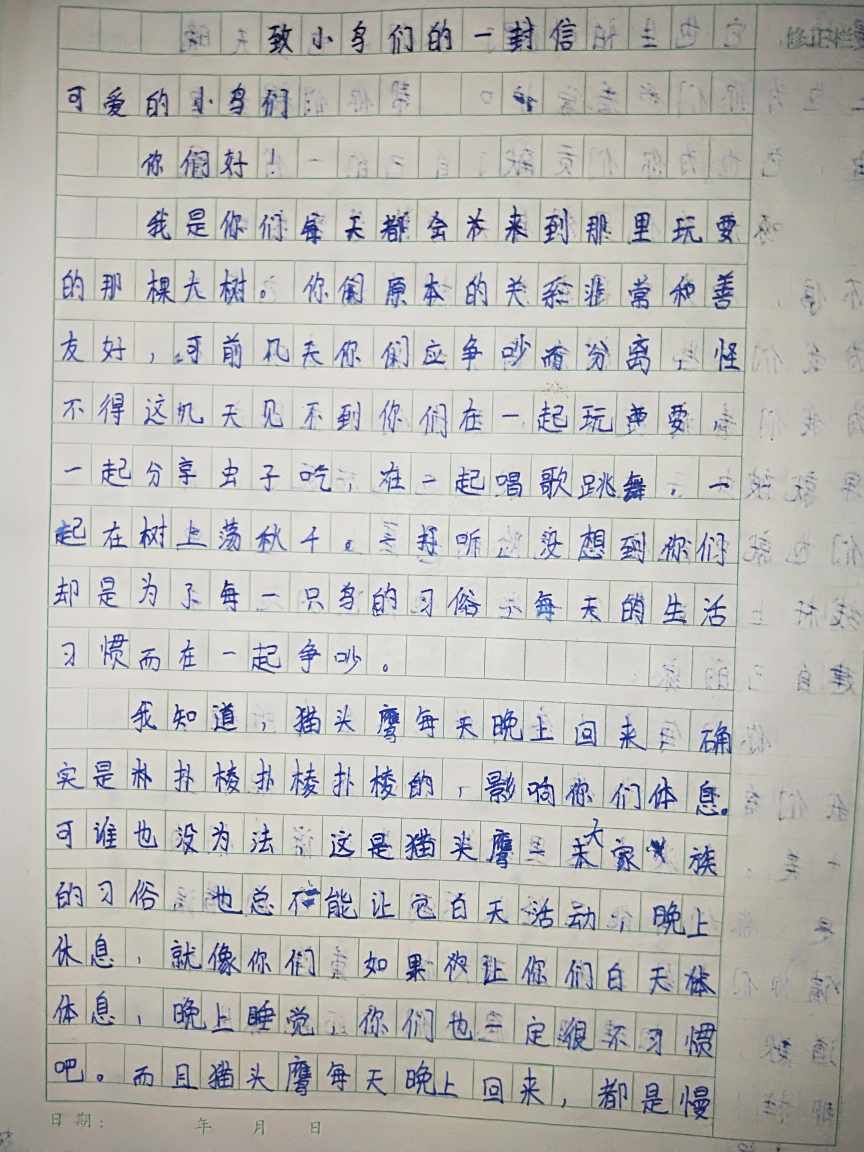 致小鸟们的一封信
可爱的小鸟们
你们好！
我是你们每天都会来到那里玩耍
的那棵大树。你们原本的关系非常和善
友好，可前几天你们应争吵而分离，怪
不得这几天见不到你们在一起玩耍，
一起分享虫子吃，在一起唱歌跳舞，一
起在树上荡秋千。好听没想到你们
却是为了每一只鸟的习俗每天的生活
习惯而在一起争吵。
我知道，猫头鹰每天晚上回来确
实是朴扑棱扑棱扑棱的，影响你们体息。
可谁也没为法 这是猫头鹰大家族
的习俗，也总不能让它白天活动，晚上
休息，就像你们 如果让你们白天体
体息，晚上睡觉，你们也一定很不习惯
吧。而且猫头鹰每天晚上回来，都是慢
日期： 年 月 日